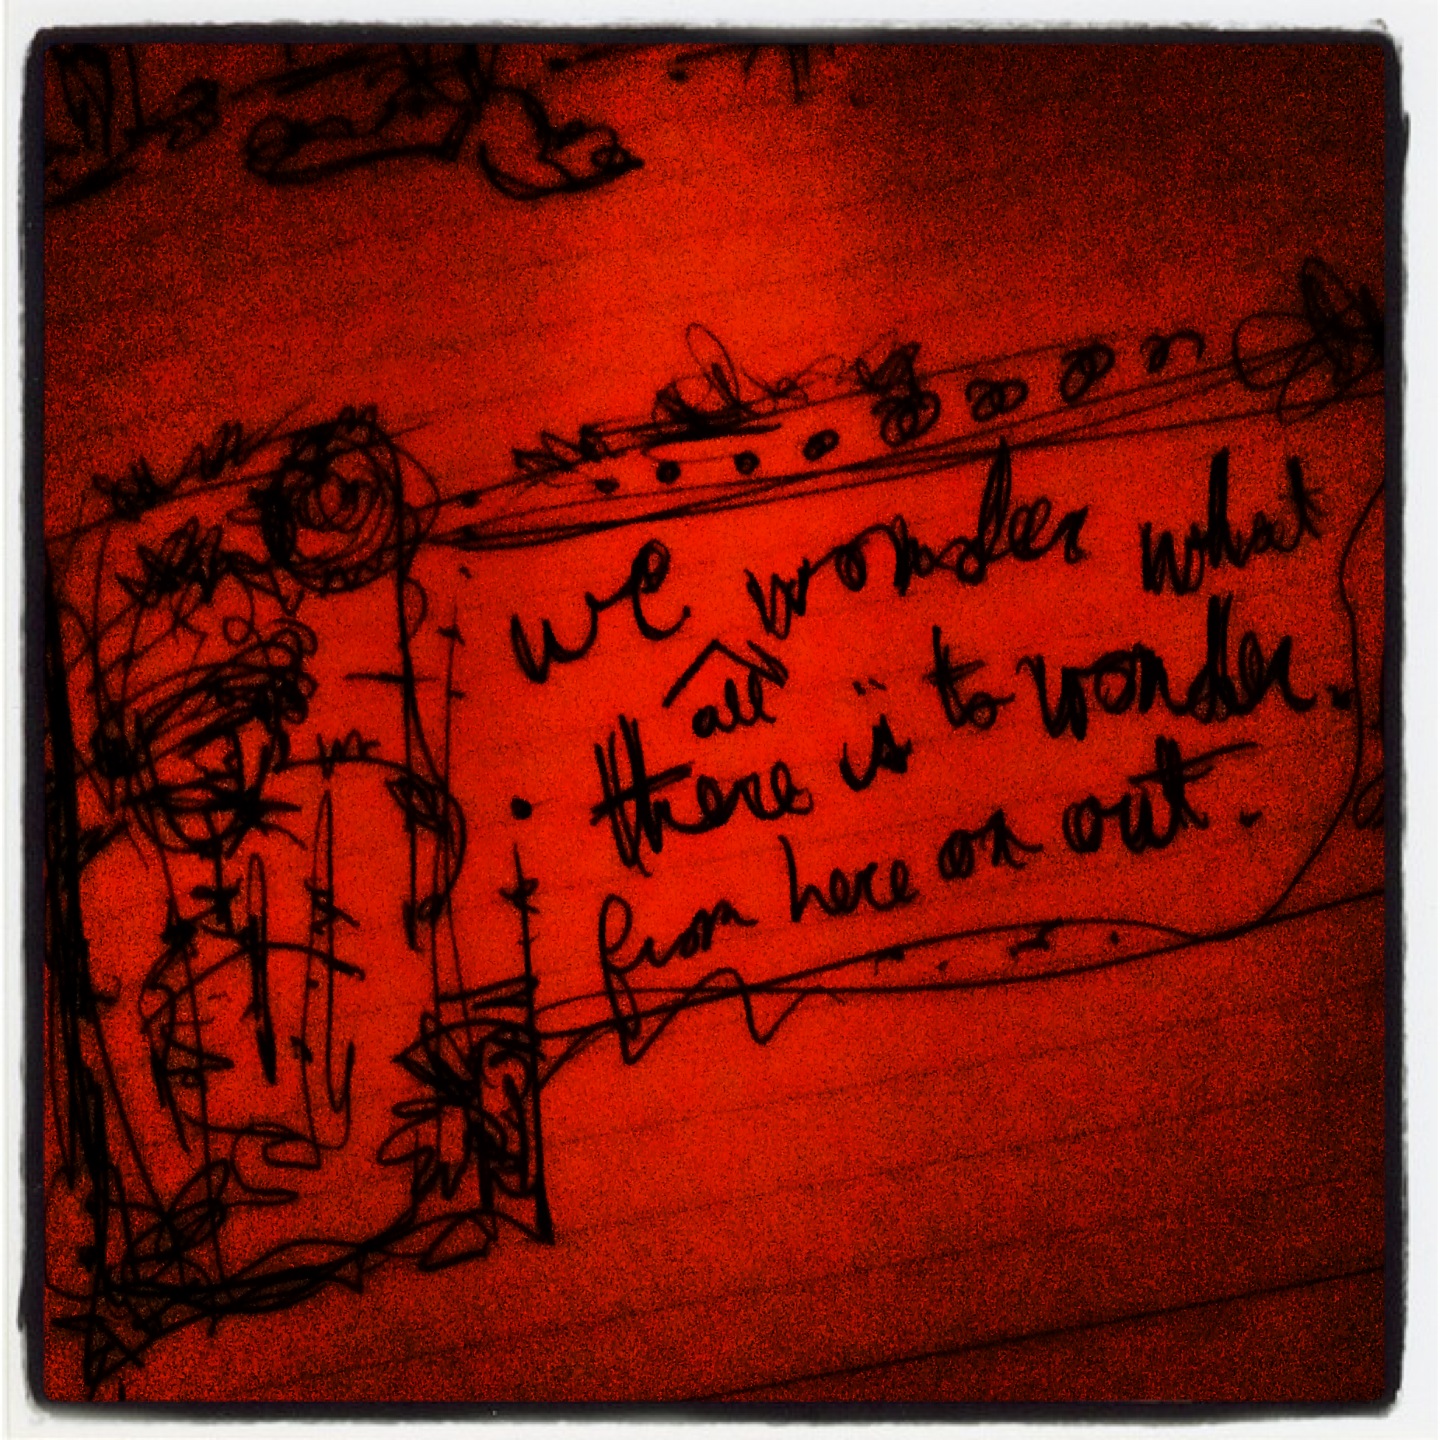 we wonder what
all
there is to wonder.
from here on out.